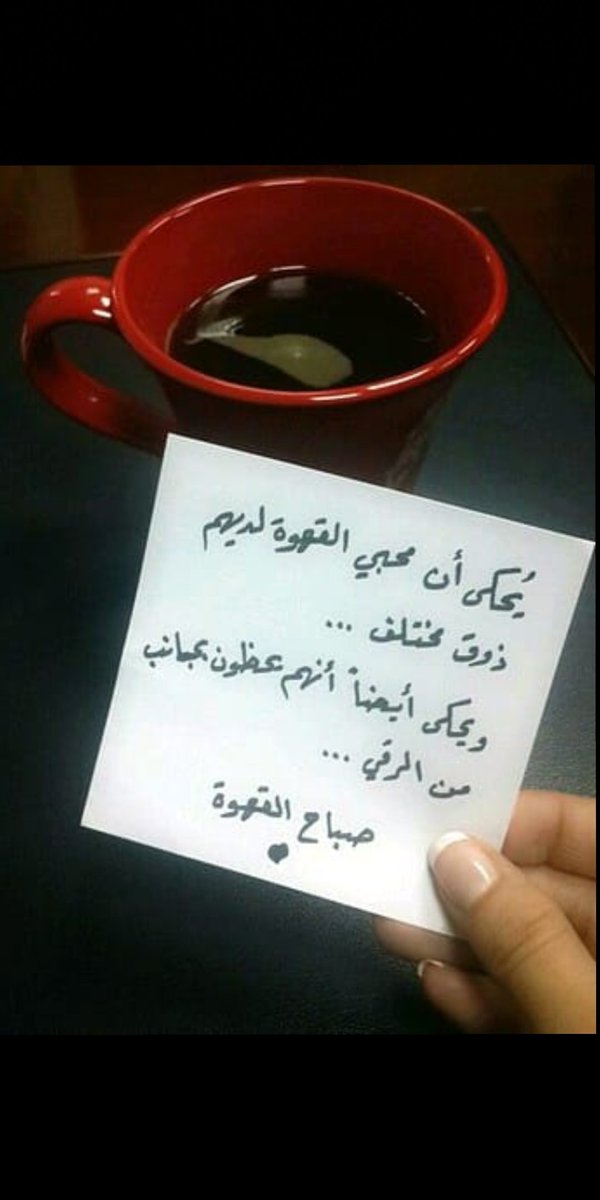 يُحكى أن محبي القهوة لديهم
ذوق مختلف ...
ويحكى أيضاً أنهم يحظون بجانب
من الرقي ...
صباح القهوة
♥